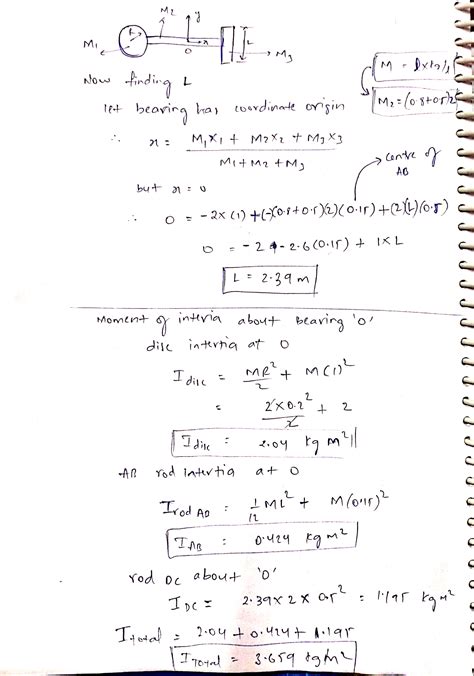 M2
y
r
x
L
M1
O
M3
M = l x λ
M2 = (0.8+0.5)2
Now finding L
let bearing has coordinate origin
∴ x = M1x1 + M2x2 + M3x3
M1+M2+M3
but x = 0
centre of AB
∴ 0 = -2x(1) + (-(0.8+0.5)(2)(0.15) + (2)(L)(0.5)
0 = -2 - 2.6(0.15) + 1xL
L = 2.39 m
Moment of interia about bearing 'O'
disc intertia at O
I disc = MR²/2 + M(1)²
= 2x0.2²/2 + 2
I disc = 2.04 kg m²
AB rod intertia at O
I rod AB = 1/12 ML² + M(0.15)²
I AB = 0.424 kg m²
rod DC about 'O'
I DC = 2.39 x 2 x 0.5² = 1.195 kg m²
I Total = 2.04 + 0.424 + 1.195
I TOTAL = 3.659 kg m²